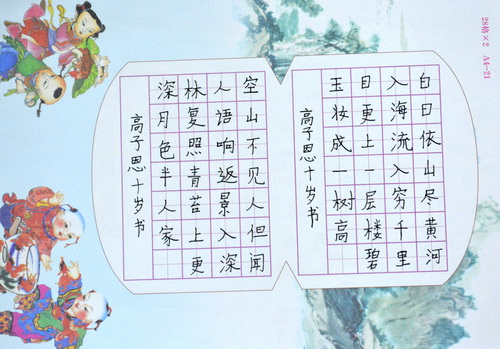 白日依山尽黄河
入海流入穷千里
目更上一层楼碧
玉妆成一树高
高子思十岁书
空山不见人但闻
人语响返景入深
林复照青苔上更
深月色半人家
高子思十岁书
28格×2 A4-21